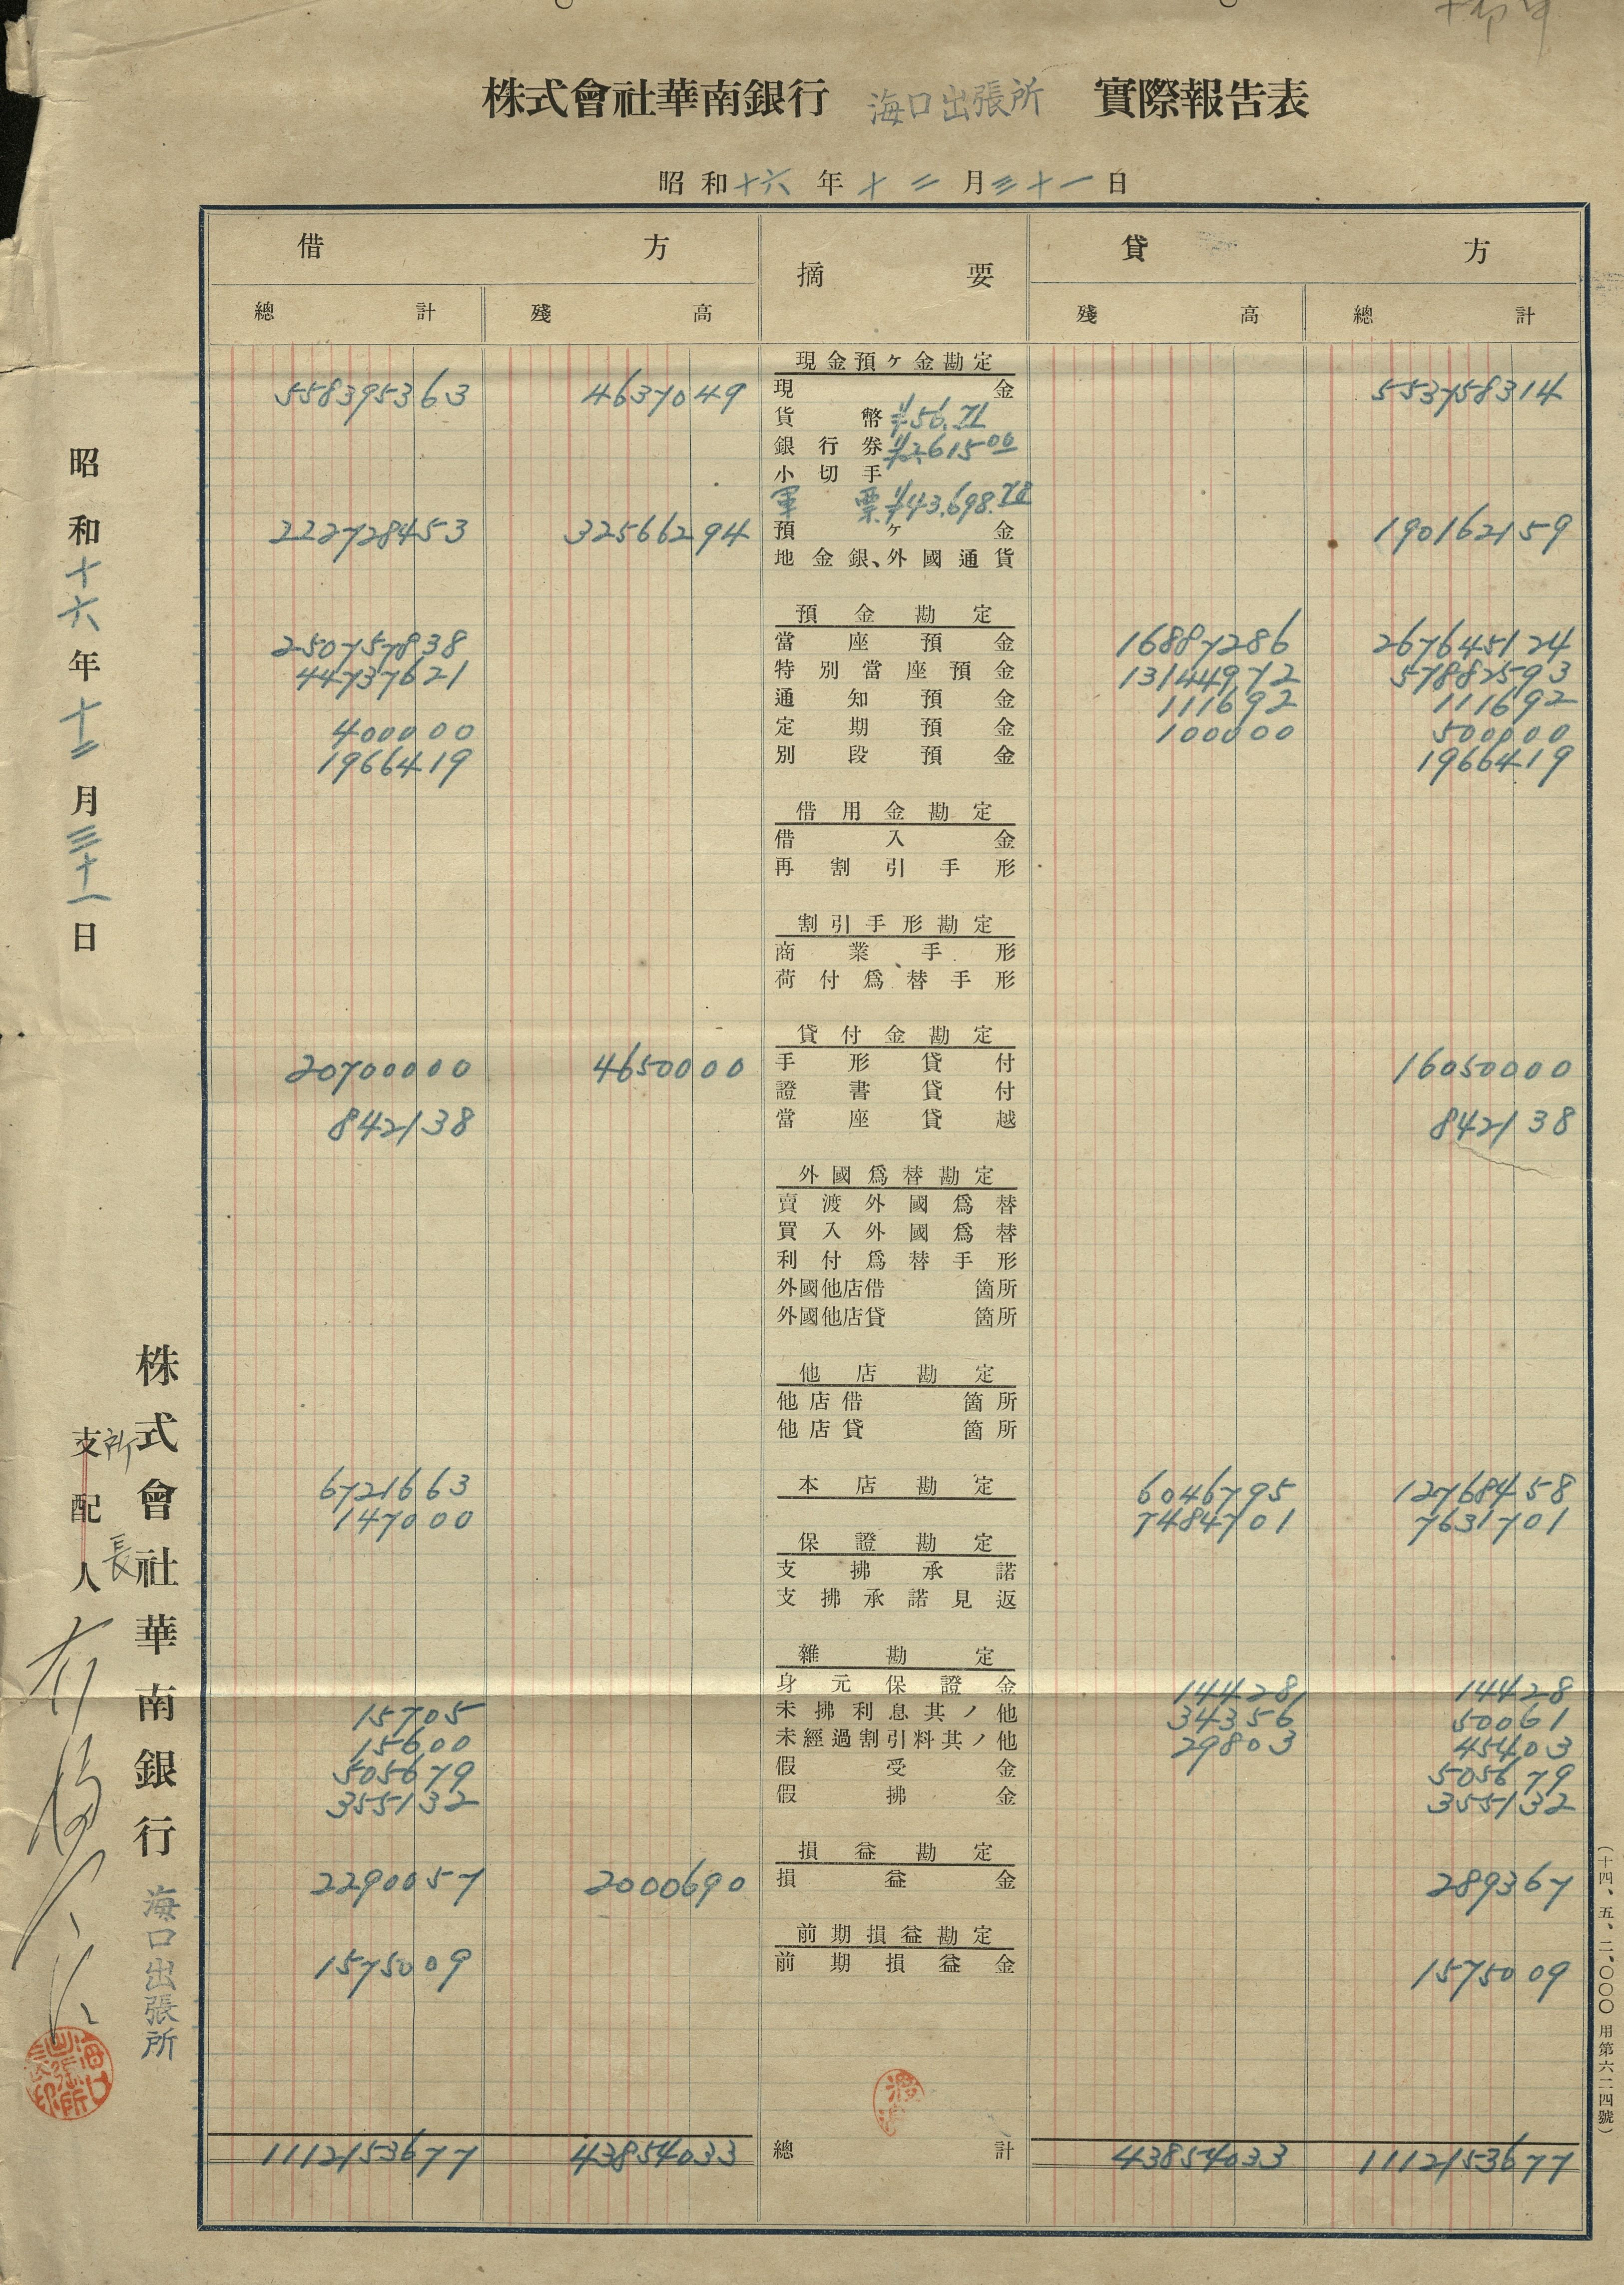 株式會社華南銀行 海口出張所 實際報告表
昭和十六年十二月三十一日
借方 摘要 貸方
總計 殘高 殘高 總計
現金預ヶ金勘定
558395363 4637049 現金 553758314
貨幣 ¥56.71
銀行券 ¥2,615.00
小切手
軍票 ¥43,698.78
222728453 32566294 預ヶ金 190162159
地金銀、外國通貨
預金勘定
250757838 當座預金 16887286 267645124
44737621 特別當座預金 13144972 57882593
通知預金 111692 111692
400000 定期預金 100000 500000
1966419 別段預金 1966419
借用金勘定
借入金
再割引手形
割引手形勘定
商業手形
荷付爲替手形
貸付金勘定
20700000 4650000 手形貸付 16050000
證書貸付
842138 當座貸越 842138
外國爲替勘定
賣渡外國爲替
買入外國爲替
利付爲替手形
外國他店借 箇所
外國他店貸 箇所
他店勘定
他店借 箇所
他店貸 箇所
6721663 本店勘定 6046795 12768458
147000 7484701 7631701
保證勘定
支拂承諾
支拂承諾見返
雜勘定
身元保證金 14428 14428
15705 未拂利息其ノ他 34356 50061
15600 未經過割引料其ノ他 29803 45403
505679 假受金 505679
355132 假拂金 355132
損益勘定
2290057 2000690 損益金 289367
前期損益勘定
1575009 前期損益金 1575009
1112153677 43854033 總計 43854033 1112153677
昭和十六年十二月三十一日
株式會社華南銀行 海口出張所
支配人
所長
海口出張所長印
(十四、五、二、〇〇〇 用第六二四號)